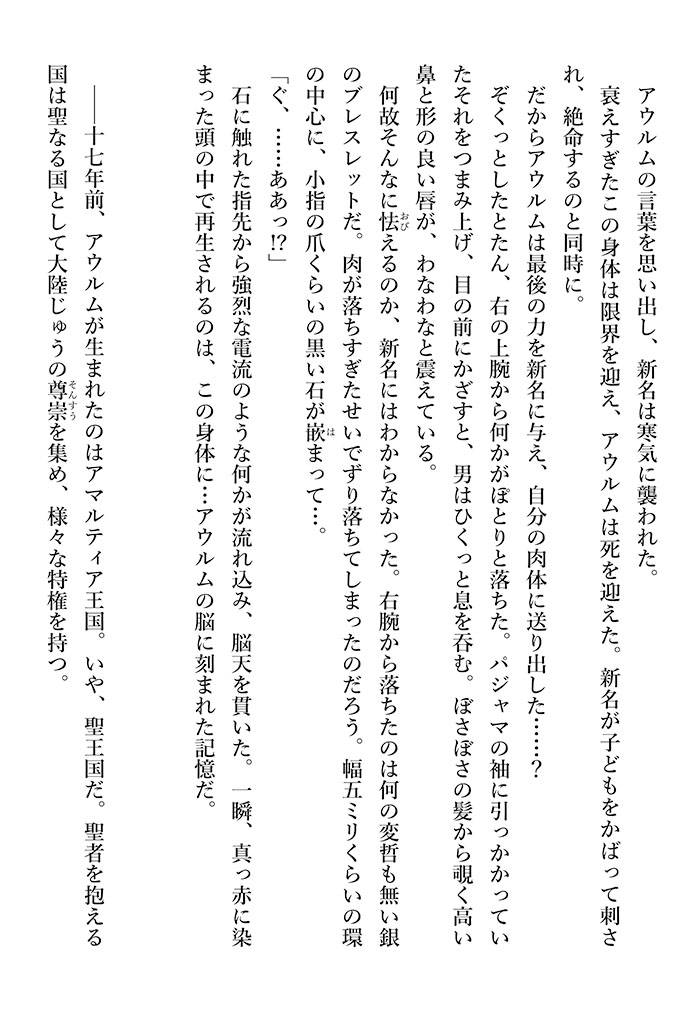 アウルムの言葉を思い出し、新名は寒気に襲われた。
衰えすぎたこの身体は限界を迎え、アウルムは死を迎えた。新名が子どもをかばって刺さ
れ、絶命するのと同時に。
だからアウルムは最後の力を新名に与え、自分の肉体に送り出した……？
ぞくっとしたとたん、右の上腕から何かがぽとりと落ちた。パジャマの袖に引っかかってい
たそれをつまみ上げ、目の前にかざすと、男はひくっと息を呑む。ぼさぼさの髪から覗く高い
鼻と形の良い唇が、わなわなと震えている。
何故そんなに怯えるのか、新名にはわからなかった。右腕から落ちたのは何の変哲も無い銀
のブレスレットだ。肉が落ちすぎたせいでずり落ちてしまったのだろう。幅五ミリくらいの環
の中心に、小指の爪くらいの黒い石が嵌まって…。
「ぐ、……ああっ!?」
石に触れた指先から強烈な電流のような何かが流れ込み、脳天を貫いた。一瞬、真っ赤に染
まった頭の中で再生されるのは、この身体に…アウルムの脳に刻まれた記憶だ。
――十七年前、アウルムが生まれたのはアマルティア王国。いや、聖王国だ。聖者を抱える
国は聖なる国として大陸じゅうの尊崇を集め、様々な特権を持つ。